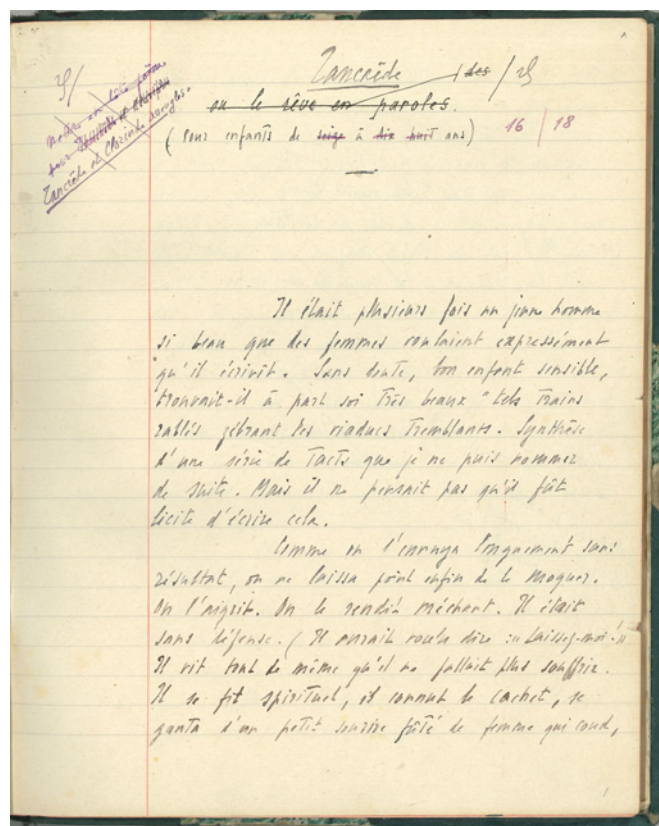 Tancrède
ou le rêve en paroles.
des
(pour enfants de seize à dix huit ans) 16 | 18
mettre en tête
pour
Tancrède et Clorinde aveugles.
Il était plusieurs fois un jeune homme
si beau que des femmes voulaient expressément
qu'il écrivît. Sans doute, bon enfant sensible,
trouvait-il à part soi très beaux "tels trains
rablés zébrant les viaducs tremblants. Synthèse
d'une série de tacts que je ne puis nommer
de suite. Mais il ne pensait pas qu'il fût
licite d'écrire cela.
Comme on l'ennuya longuement sans
résultat, on ne laissa point enfin de le moquer.
On l'aigrit. On le rendit méchant. Il était
sans défense. (Il aurait voulu dire : « Laissez-moi. »
Il vit tout de même qu'il ne fallait plus souffrir.
Il se fit spirituel, il connut le cachet, se
ganta d'un petit sourire fûté de femme qui coud,